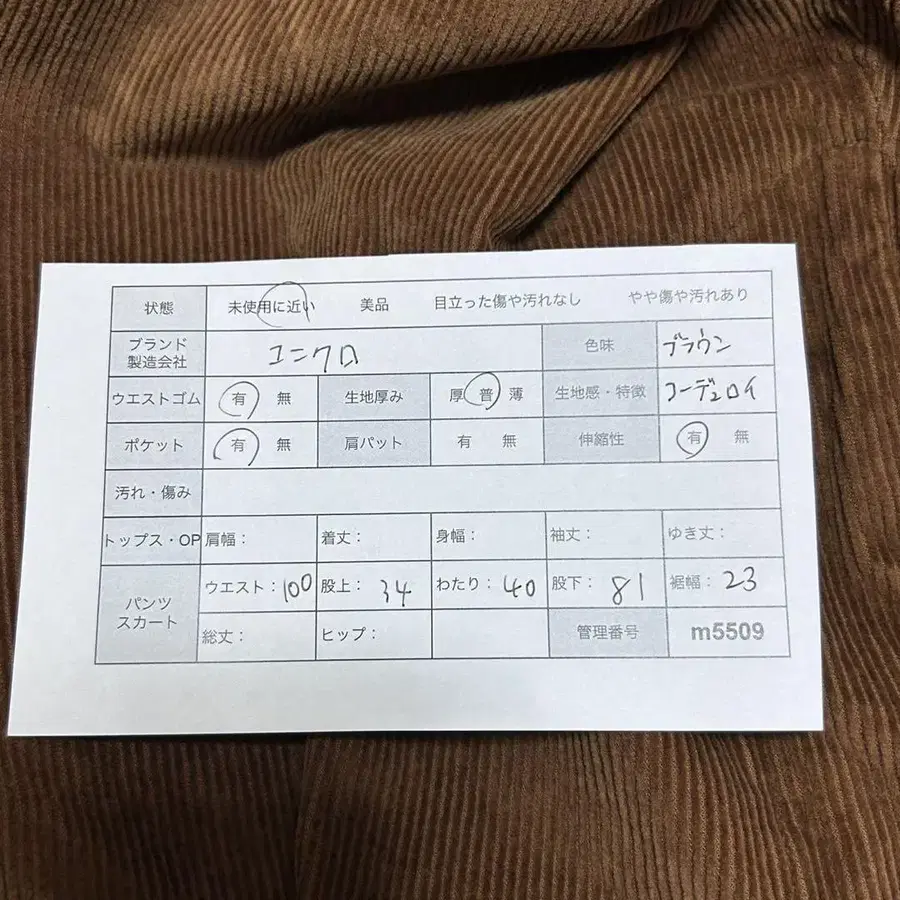 状態 未使用に近い 美品 目立った傷や汚れなし やや傷や汚れあり
ブランド
製造会社 ユニクロ 色味 ブラウン
ウエストゴム 有 無 生地厚み 厚 普 薄 生地感・特徴 コーデュロイ
ポケット 有 無 肩パット 有 無 伸縮性 有 無
汚れ・傷み
トップス・OP 肩幅： 着丈： 身幅： 袖丈： ゆき丈：
パンツ
スカート ウエスト：100 股上：34 わたり：40 股下：81 裾幅：23
総丈： ヒップ： 管理番号 m5509